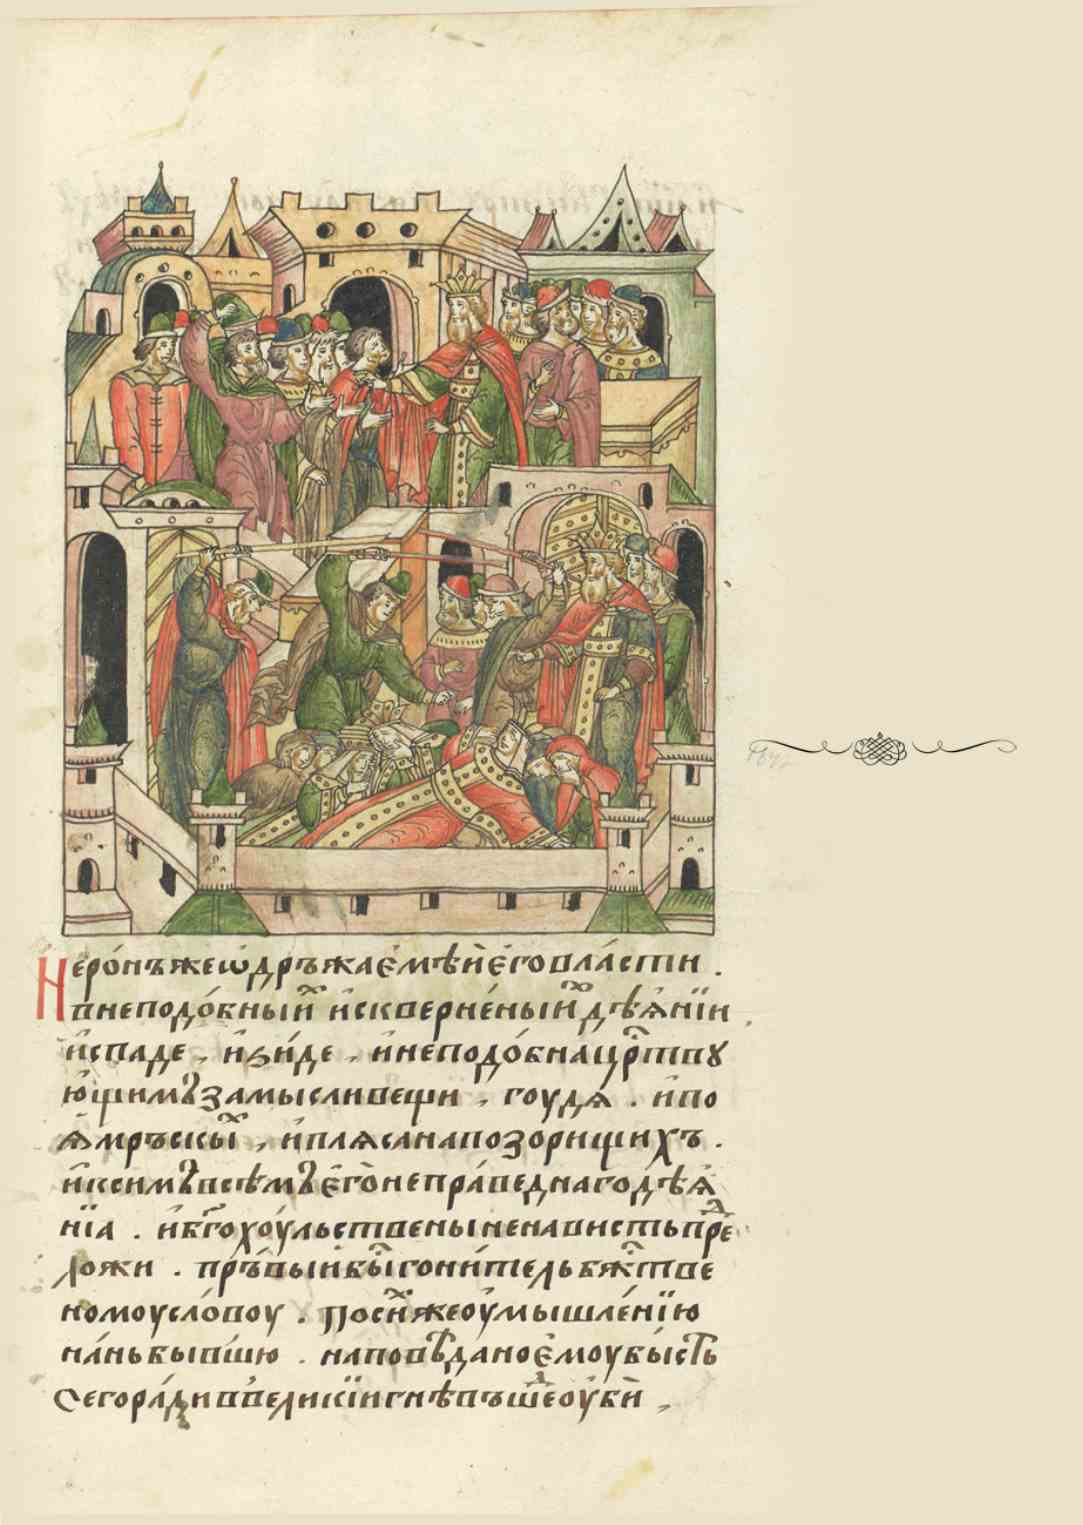 Неро́нъ же ѡдръжа́емѣй его̀ вла́сти .
в неподо́бныи҆х и҆ скверне́ныи҆х дѣѧ́нїи
и҆спаде , и҆зы́де , и҆ неподо́бна црⷭ҇тву
ю́щимъ замысли вещи , гоудѧ̀ . и҆ по
ѧ̀ мръскы́и҆ , и҆ плѧса на позорищихъ .
и҆ к симъ всѣмъ его̀ непра́веднаго дѣѧ̀
нїа . и҆ бг҃охоу́льствены ненависть прⷣе
ложи . пръвы́и҆ бы́ⷭ҇ гони́тель бжⷭ҇тве
номоу сло́воу . посн҃ѧ же оу҆мышле́нїю
на́нь бы́вшю . наповѣ́дано е҆моу бы́сть
сего ра́ди в вели́кїи гнѣвъ шеⷣ оу҆би̑ ,